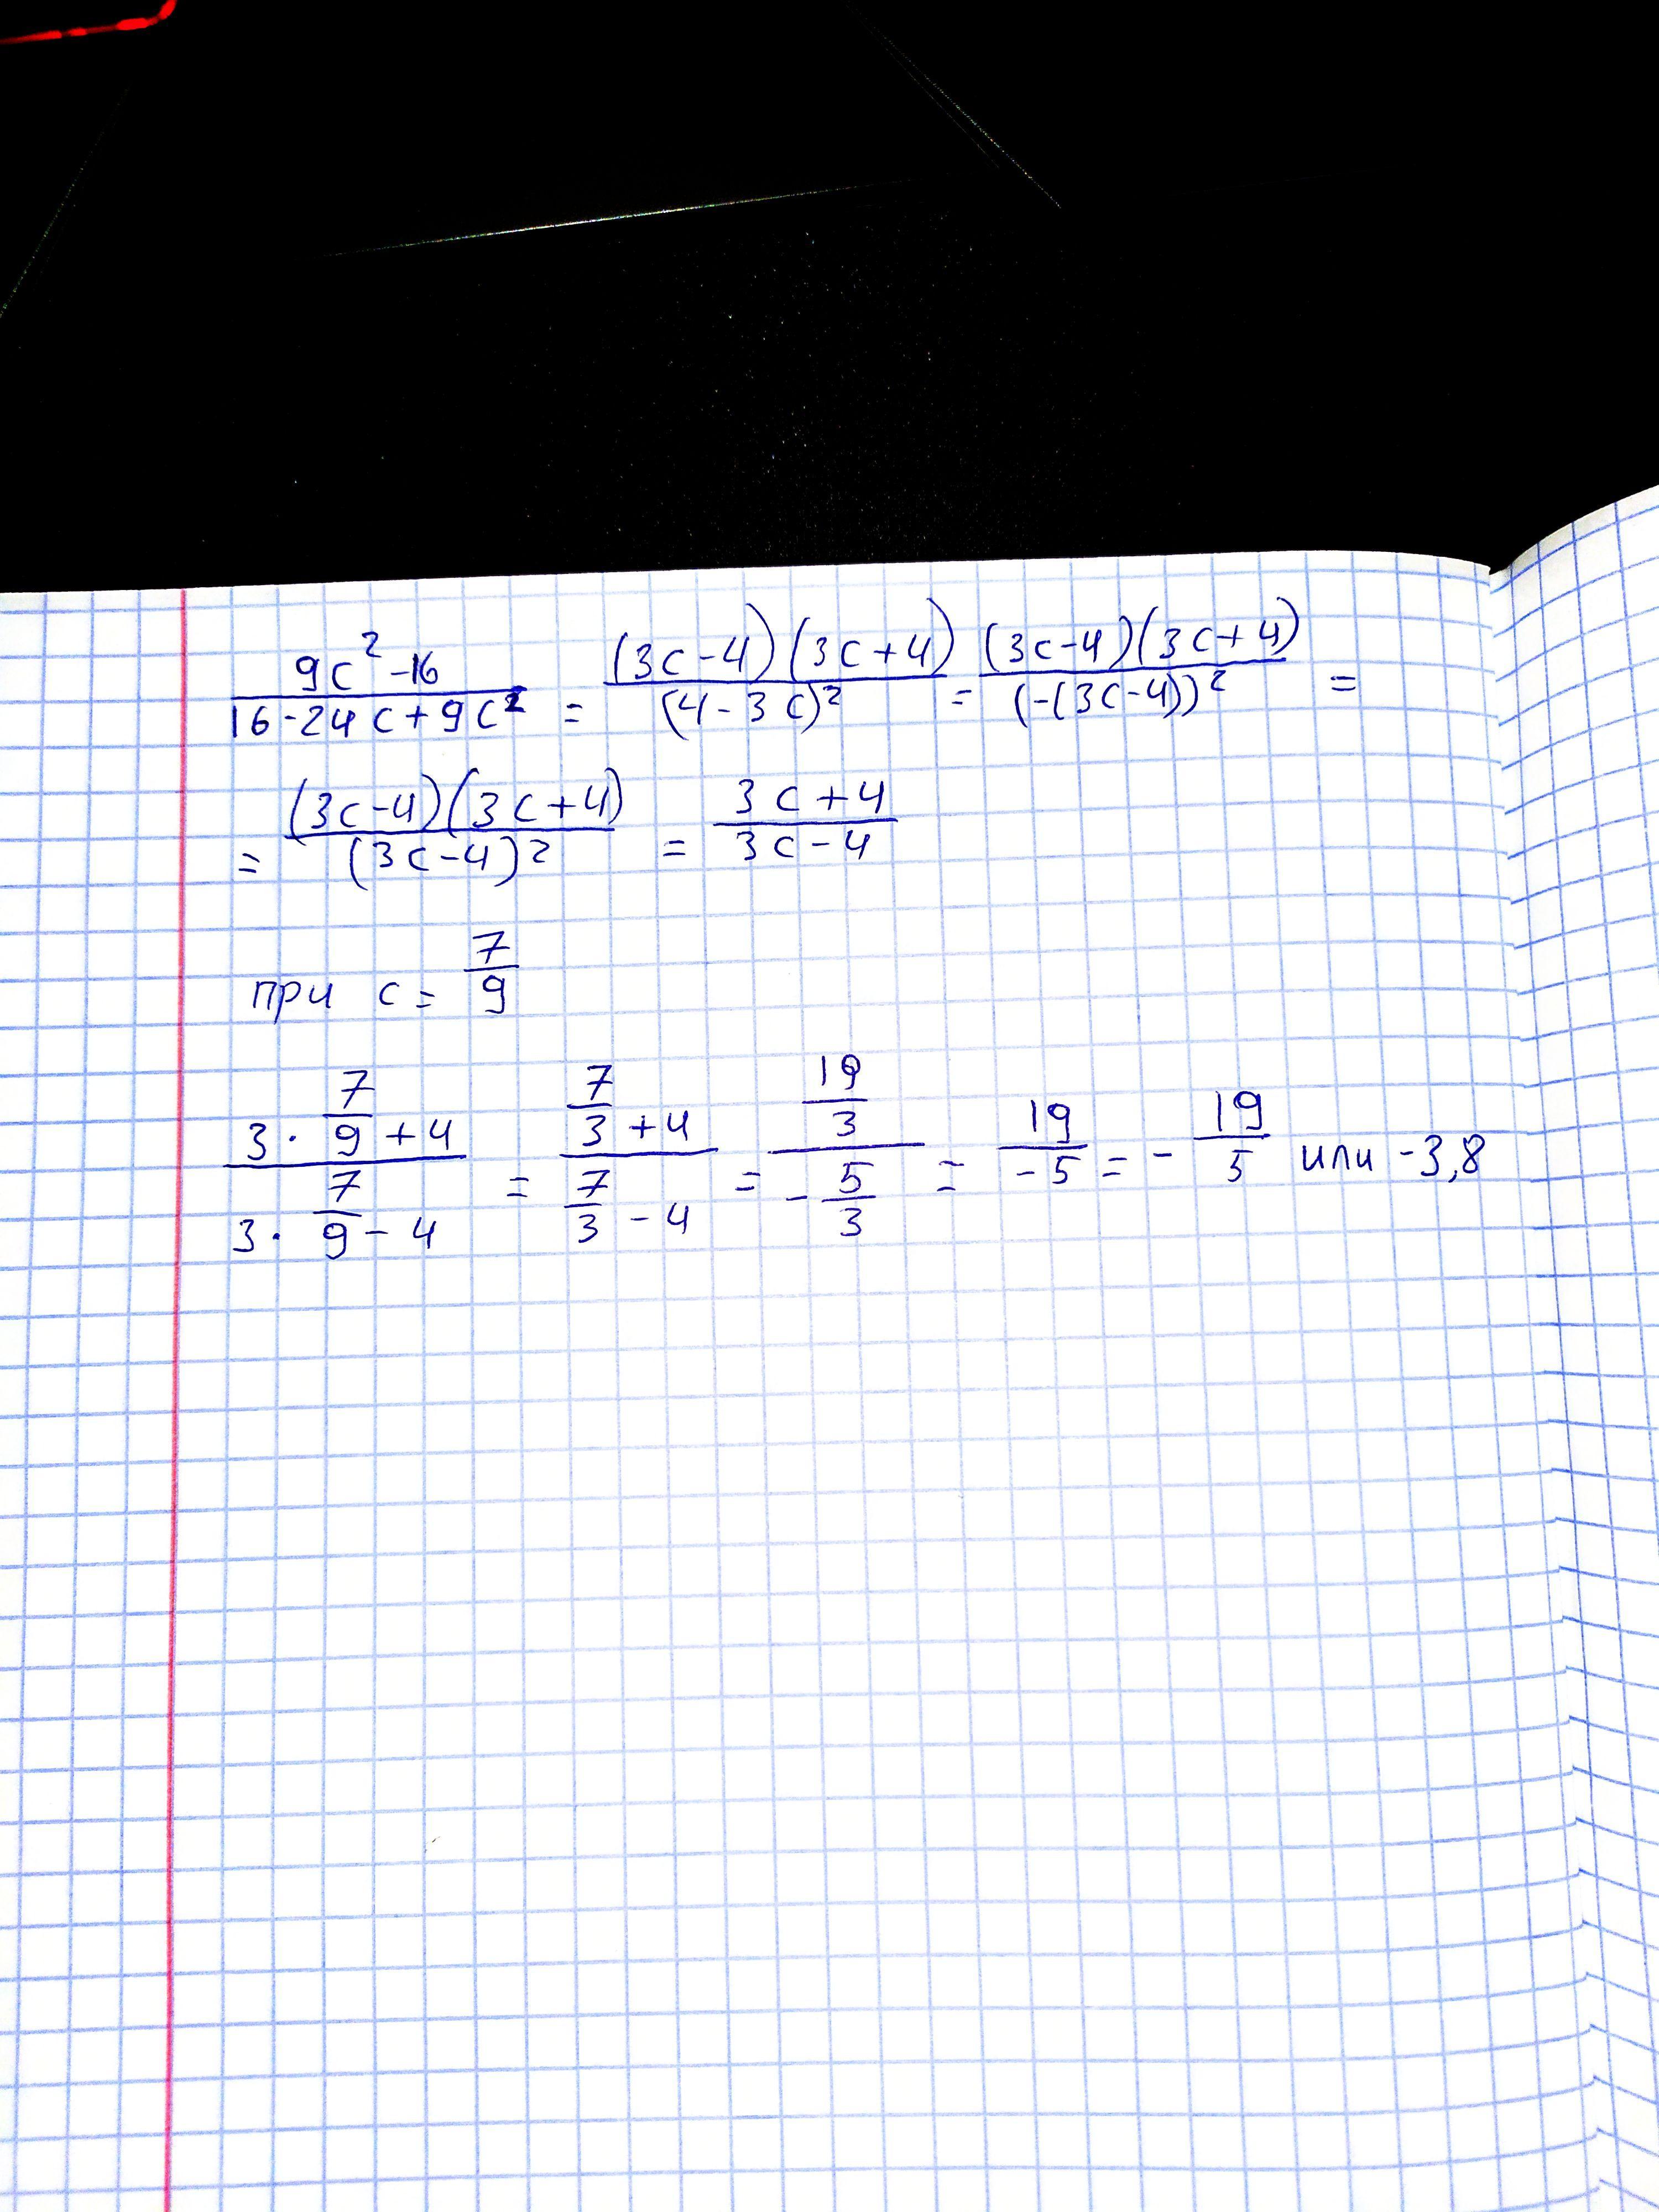 (9c² - 16)/(16 - 24c + 9c²) = ((3c - 4)(3c + 4))/((4 - 3c)²) = ((3c - 4)(3c + 4))/((-(3c - 4))²) =
= ((3c - 4)(3c + 4))/((3c - 4)²) = (3c + 4)/(3c - 4)
при c = 7/9
(3 · 7/9 + 4)/(3 · 7/9 - 4) = (7/3 + 4)/(7/3 - 4) = (19/3)/(-5/3) = 19/-5 = - 19/5 или -3,8